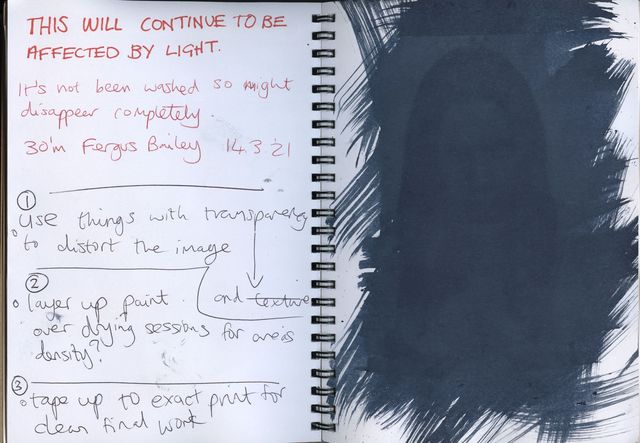 THIS WILL CONTINUE TO BE
AFFECTED BY LIGHT.
It's not been washed so might
disappear completely
30'm Fergus Bailey 14.3.'21
①
use things with transparency
to distort the image
②
and texture
layer up paint
over drying sessions for areas
density?
③
tape up to exact print for
clean final work